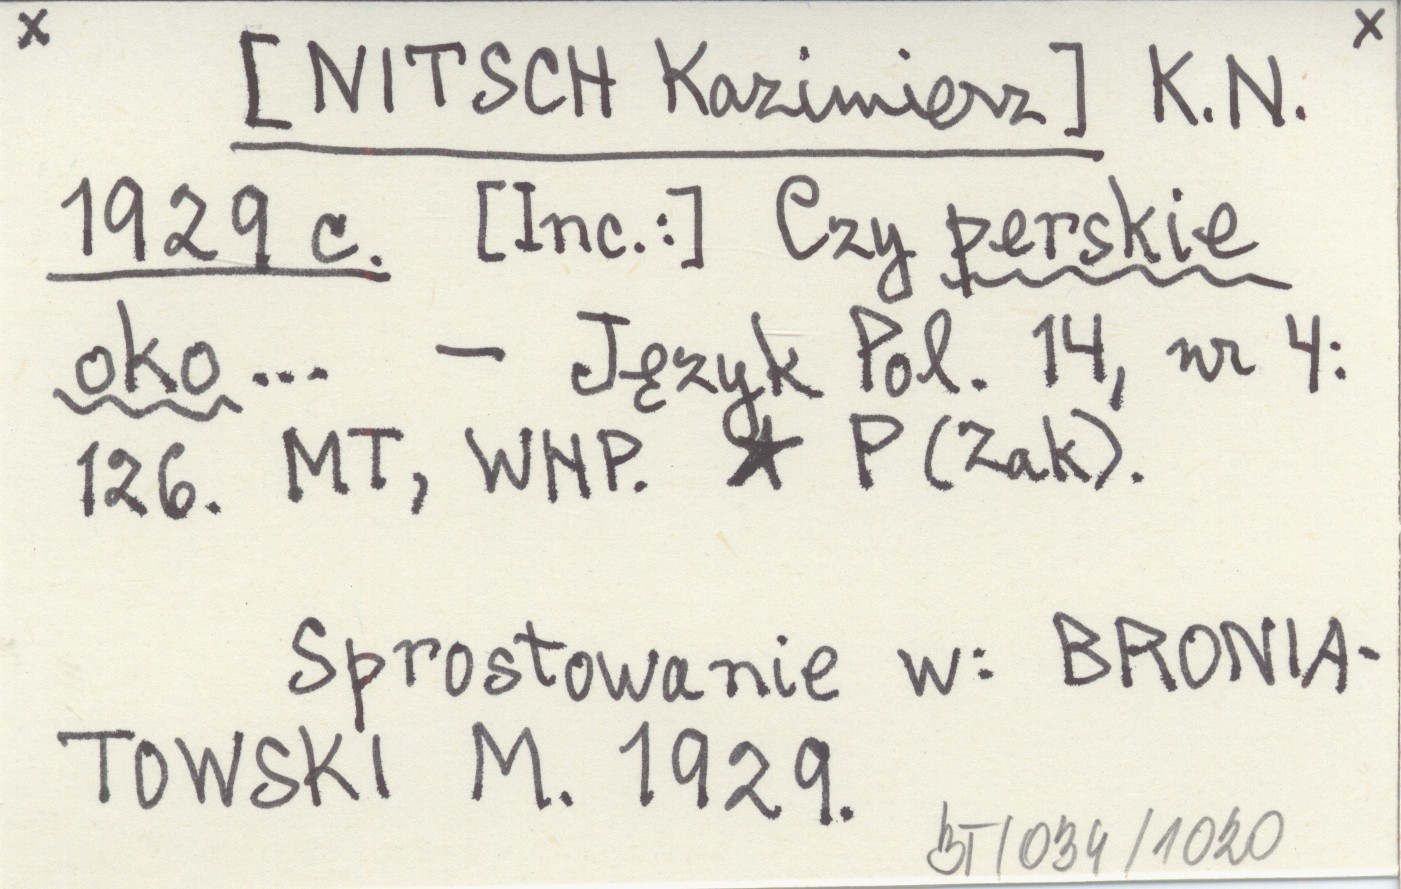 x x
[NITSCH Kazimierz] K.N.
1929 c. [Inc.:] Czy perskie
oko... – Język Pol. 14, nr 4:
126. MT, WNP. * P (Zak).
Sprostowanie w: BRONIA-
TOWSKI M. 1929.
BT/034/1020